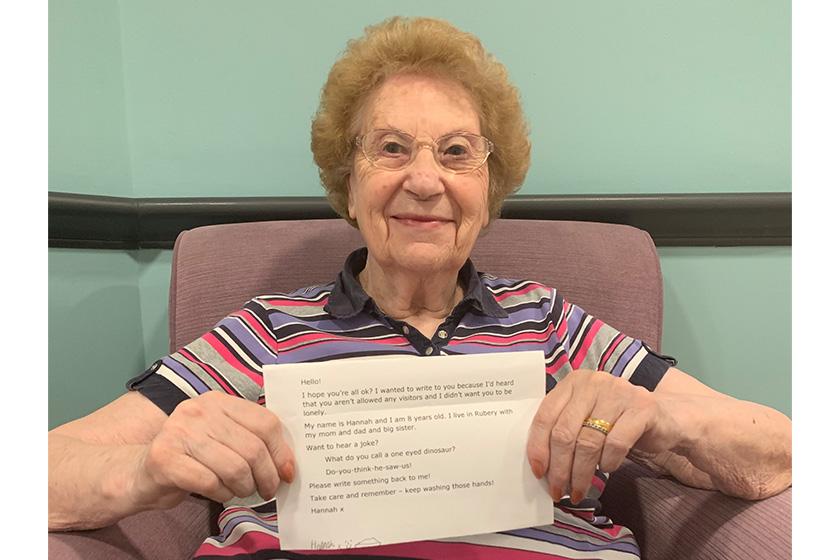 Hello!
I hope you're all ok? I wanted to write to you because I'd heard
that you aren't allowed any visitors and I didn't want you to be
lonely.
My name is Hannah and I am 8 years old. I live in Rubery with
my mom and dad and big sister.
Want to hear a joke?
What do you call a one eyed dinosaur?
Do-you-think-he-saw-us!
Please write something back to me!
Take care and remember – keep washing those hands!
Hannah x
Hannah x